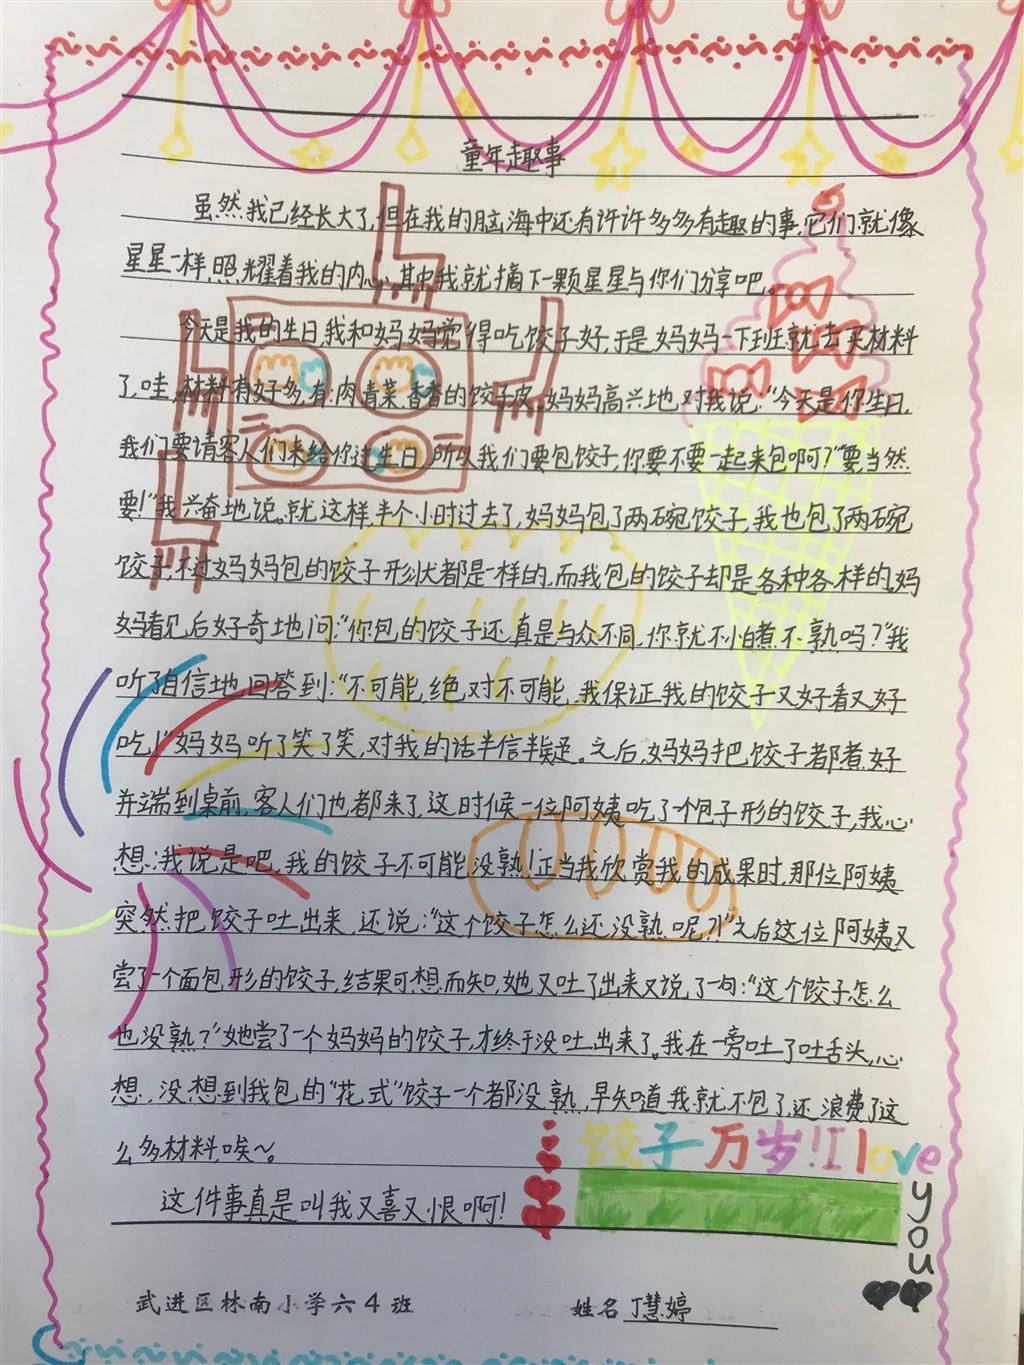 童年趣事
虽然我已经长大了,但在我的脑海中还有许许多多有趣的事,它们就像
星星一样,照耀着我的内心,其中我就摘下一颗星星与你们分享吧。
今天是我的生日,我和妈妈觉得吃饺子好,于是妈妈一下班就去买材料
了,哇,材料有好多,有:肉,青菜,香香的饺子皮,妈妈高兴地对我说:“今天是你生日,
我们要请客人们来给你过生日,所以我们要包饺子,你要不要一起来包啊?”“要,当然
要!”我兴奋地说。就这样半个小时过去了,妈妈包了两碗饺子,我也包了两碗
饺子,不过妈妈包的饺子形状都是一样的,而我包的饺子却是各种各样的。妈
妈看见后好奇地问:“你包的饺子还真是与众不同,你就不怕煮不熟吗?”我
听了自信地回答到:“不可能,绝对不可能,我保证我的饺子又好看又好
吃!”妈妈听了笑了笑,对我的话半信半疑。之后,妈妈把饺子都煮好
并端到桌前,客人们也都来了,这时候一位阿姨吃了个包子形的饺子,我心
想:我说是吧,我的饺子不可能没熟!正当我欣赏我的成果时,那位阿姨
突然把饺子吐出来,还说:“这个饺子怎么还没熟呢?!”之后这位阿姨又
尝了一个面包形的饺子,结果可想而知,她又吐了出来又说了一句:“这个饺子怎么
也没熟?”她尝了一个妈妈的饺子,才终于没吐出来了。我在一旁吐了吐舌头,心
想,没想到我包的“花式”饺子一个都没熟,早知道我就不包了,还浪费了这
么多材料,唉~。
饺子万岁!I love
you
这件事真是叫我又喜又恨啊!
武进区林南小学六4班 姓名 丁慧婷